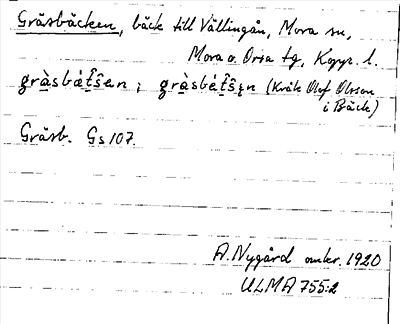 Gräsbäcken, bäck till Vållingån, Mora sn,
Mora o. Orsa tg, Kopp. l.
gràsbät̂ŝen ; gràsbét̂ŝn (Kråk Olof Olsson
i Bäck)
Gräsb. Gs 107.
A. Nygård omkr. 1920
ULMA 755:2